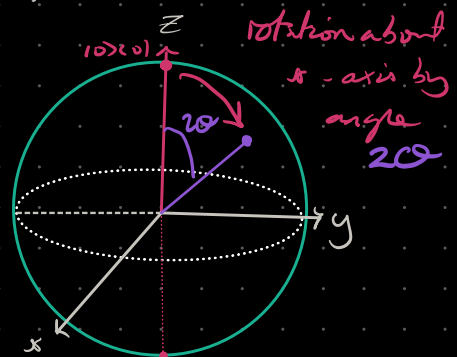 z
|0><0|
rotation about
x-axis by
angle
2θ
2θ
y
x